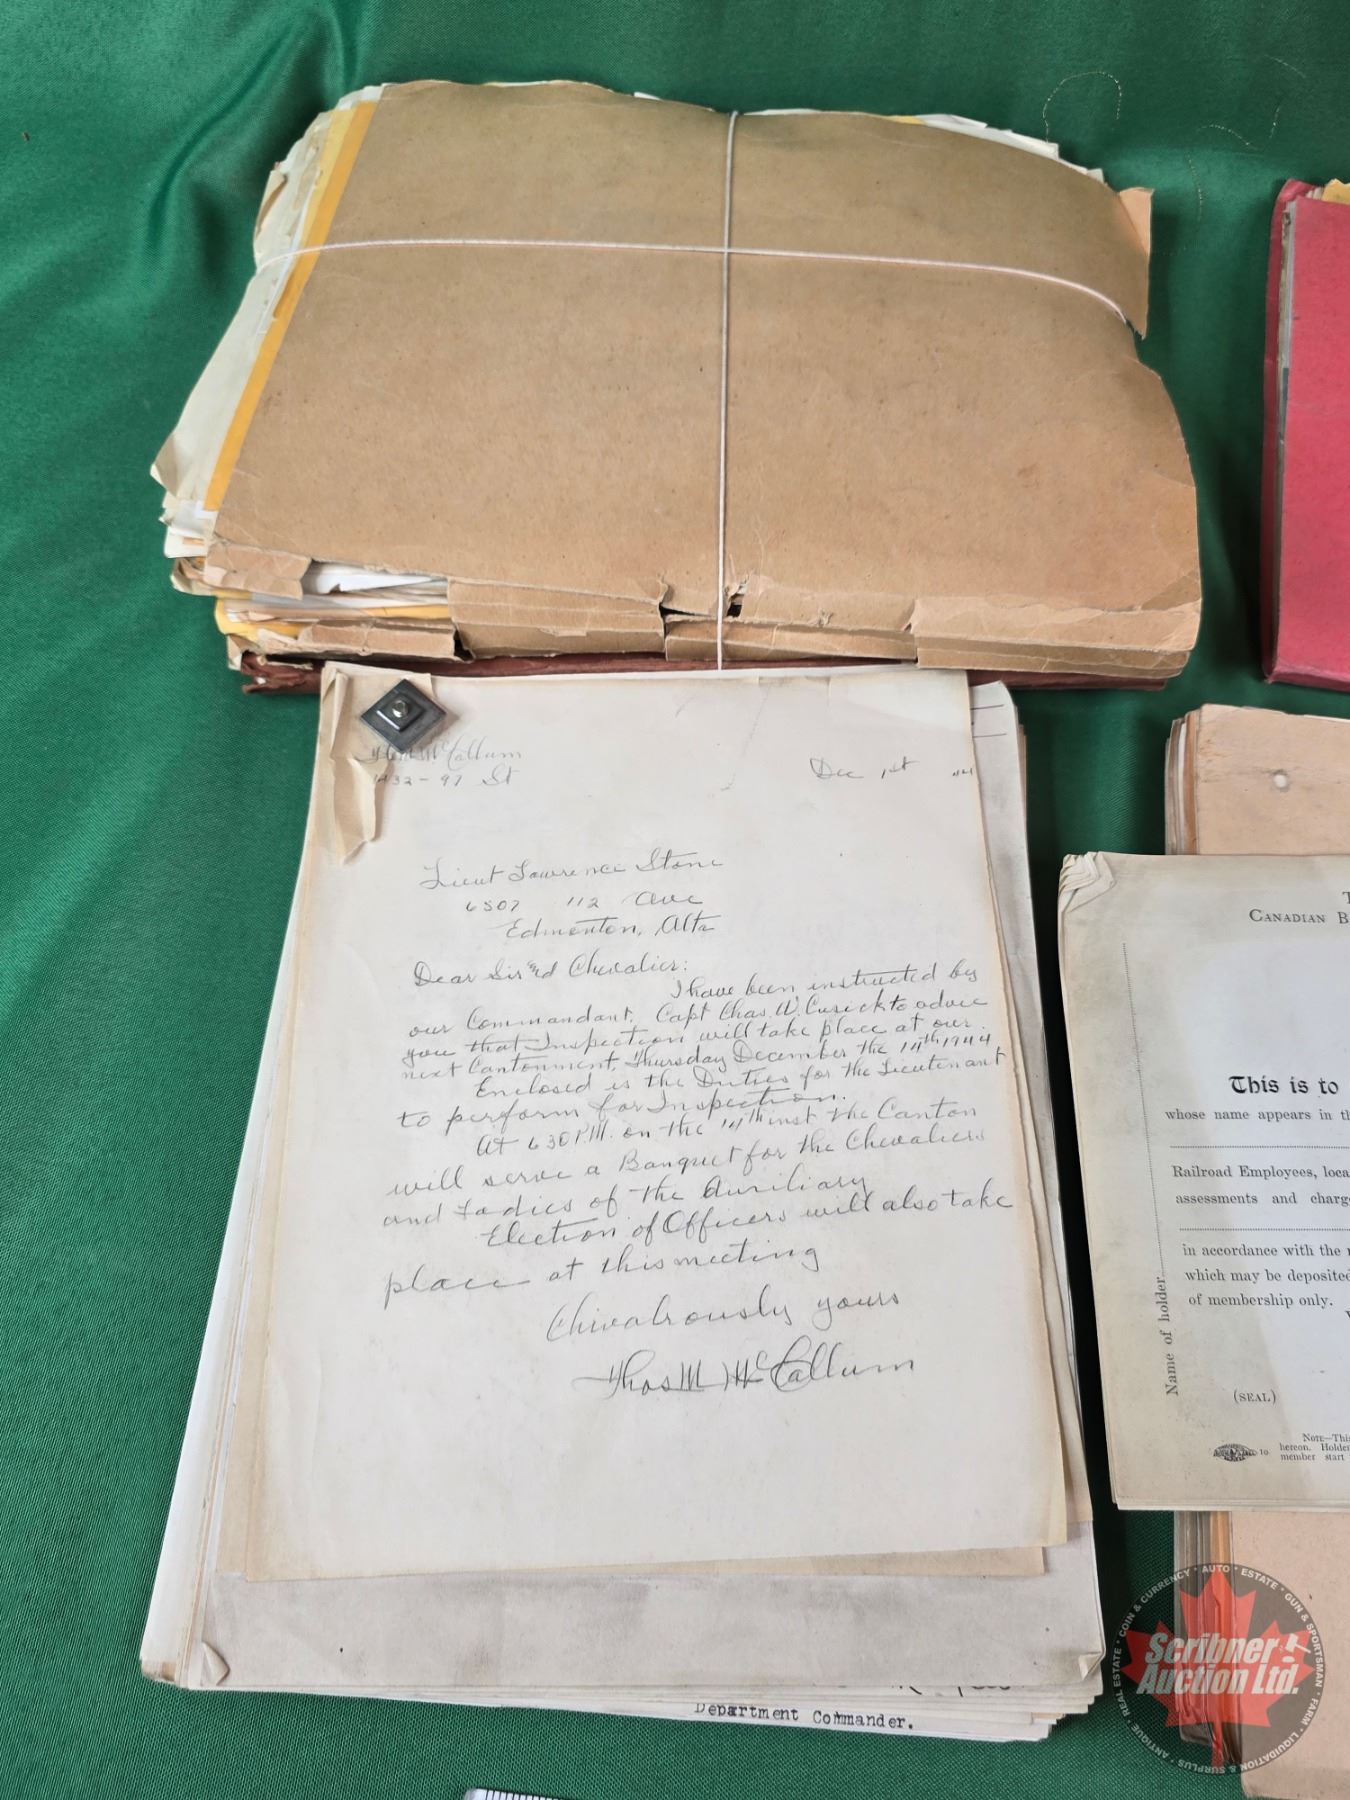 Thos M McCallum
97 St
Dec 1st 44
Lieut Lawrence Stone
6507 112 Ave
Edmonton, Alta
Dear Sir and Chevalier:
I have been instructed by
our Commandant, Capt Chas. W. Cusick to advice
you that Inspection will take place at our
next Cantonment, Thursday December the 14th 1944
Enclosed is the Duties for the Lieutenant
to perform for Inspection.
At 630 P.M. on the 14th inst the Canton
will serve a Banquet for the Chevaliers
and Ladies of the Auxiliary
Election of Officers will also take
place at this meeting
Chivalrously yours
Thos M McCallum
Department Commander.
CANADIAN B
This is to
whose name appears in th
Railroad Employees, loca
assessments and charg
in accordance with the
which may be deposited
of membership only.
Name of holder
(SEAL)
NOTE—This
hereon. Holder
member start
10
Scribner
Auction Ltd.
REAL ESTATE * COIN & CURRENCY * AUTO * ESTATE * GUN & SPORTSMAN * FARM * LIQUIDATION & SURPLUS * ANTIQUE